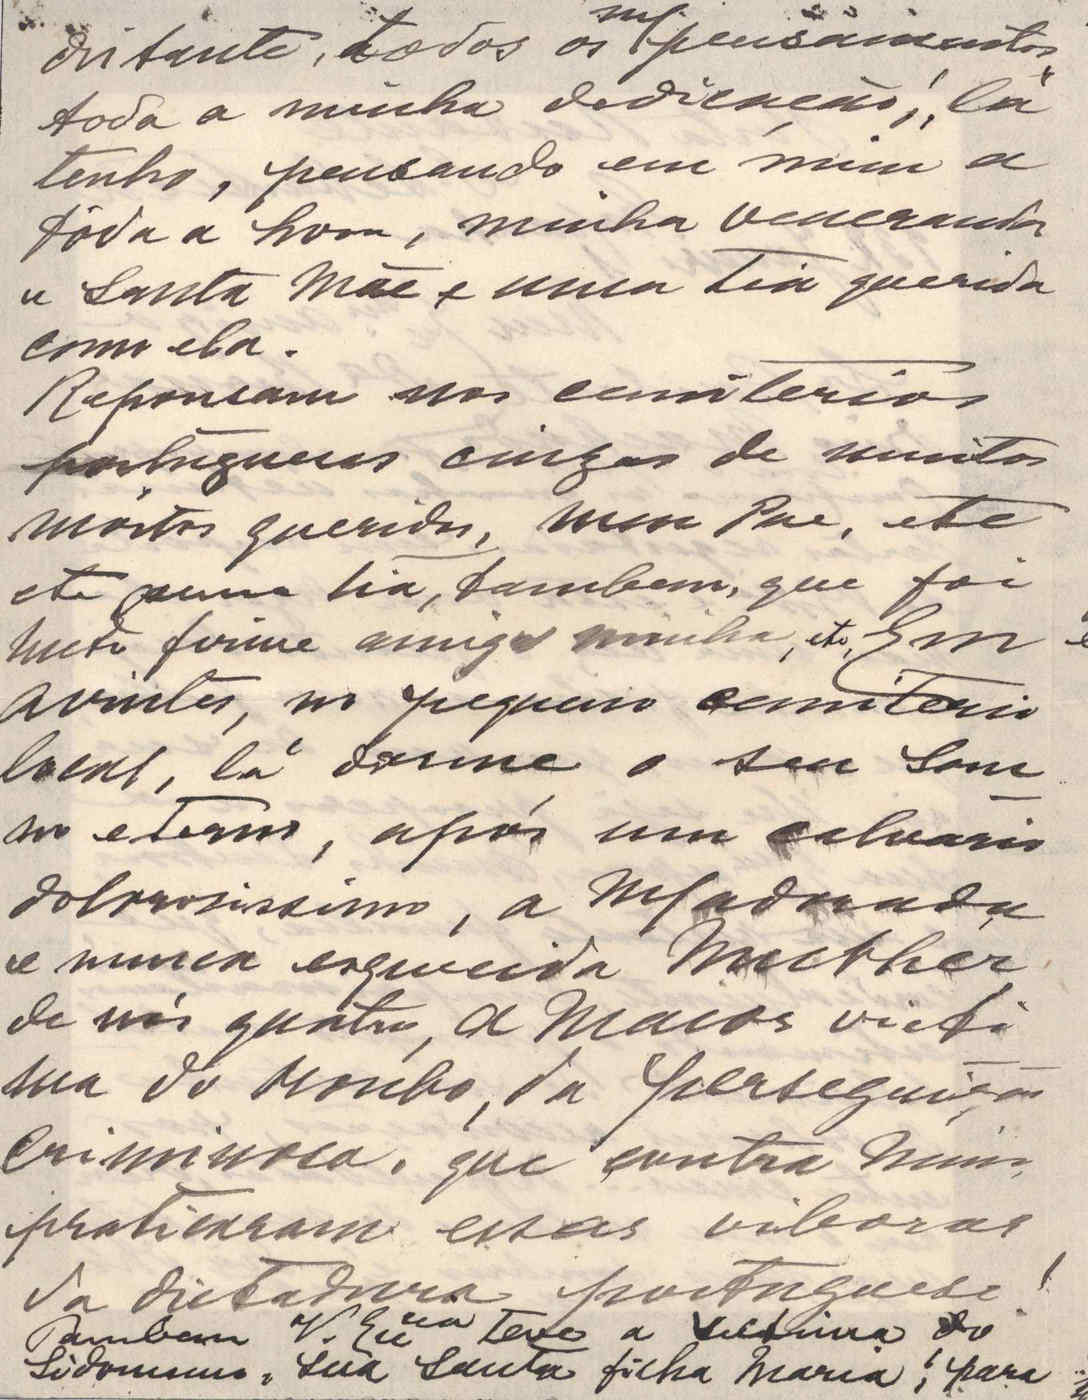 distante, todos os ms/ pensamentos,
toda a minha dedicação!, lá
tenho, pensando em mim a
tôda a hora, minha veneranda
e Santa Mãe e uma tia querida
como ela.
Repousam nos cemiterios
portugueses cinzas de muitos
môrtos queridos, meu Pae, etc
etc e uma tia, tambem, que foi
muito firme amiga minha, etc. Em
Avintes, no pequeno cemiterio
local, lá dorme o seu som
no eterno, após um calvario
dolorosissimo, a Mª adorada
e nunca esquecida Mulher,
de nós quatro, a Maior victi
ma do roubo, da perseguição
criminosa, que contra mim,
praticaram essas viboras
da dictadura portuguesa!
Tambem V. Excia teve a victima do
Sidonismo, sua Santa filha Maria!, para